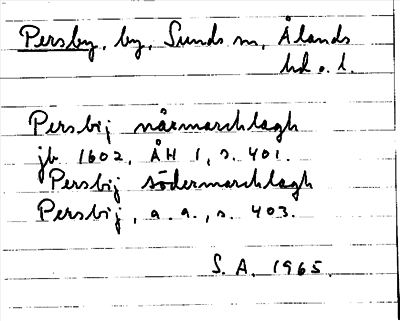 Persby, by, Sunds sn, Ålands
hd o. l.
Persbij nårmarchlagh
jb 1602, ÅH 1, s. 401.
Persbij södermarchlagh
Persbij, a. a., s. 403.
S. A. 1965.